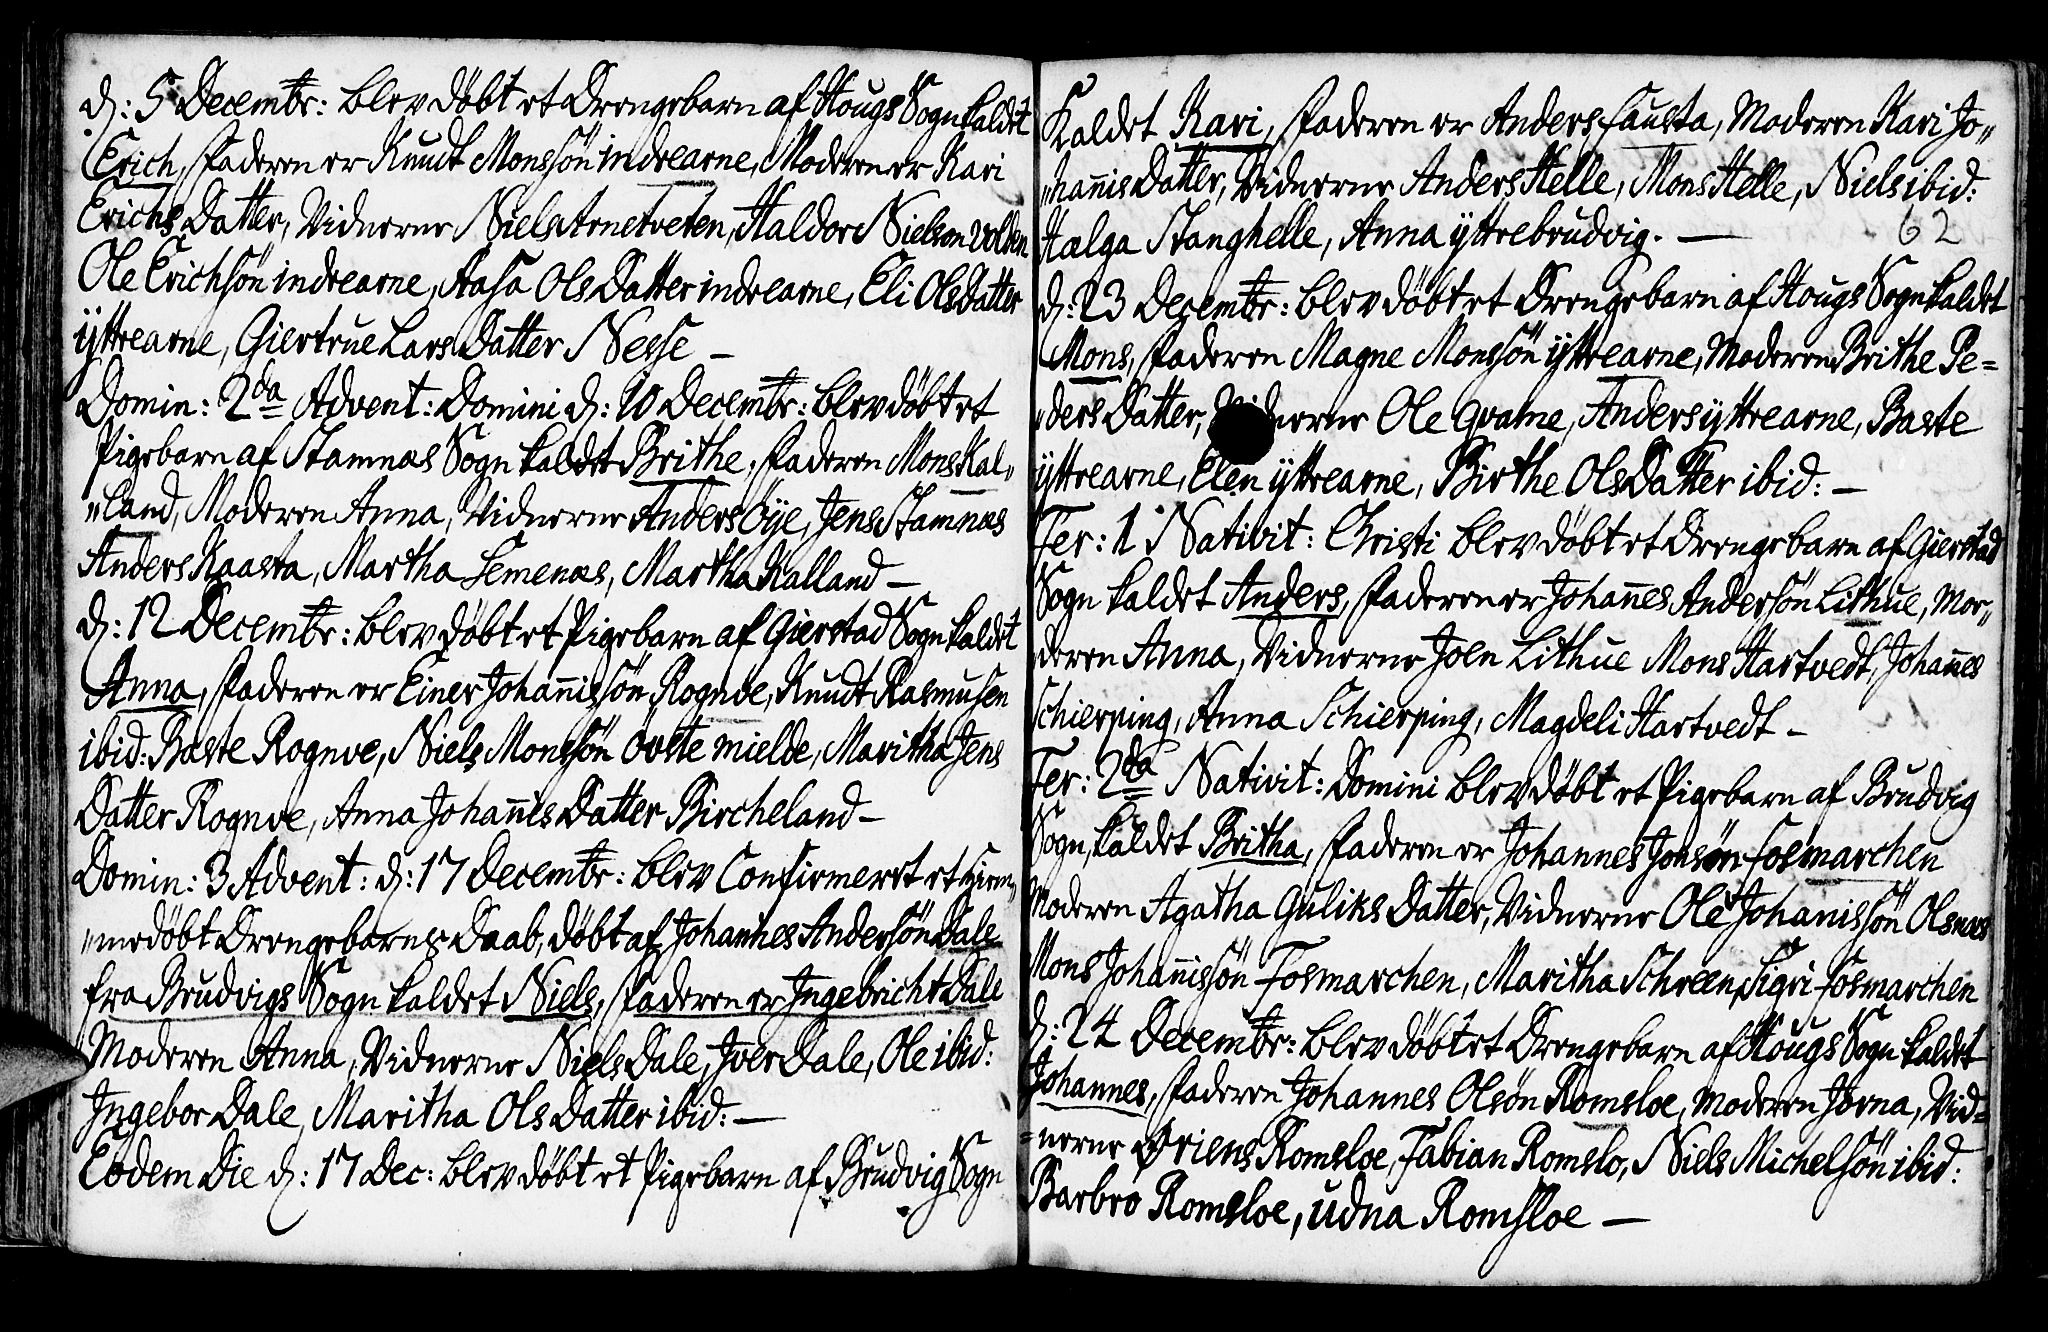 d: 5 Decembr: blev döbt et Drengebarn af Hougs Sogn kaldet
Erich, Faderen er Knudt Monssön indrearne, Moderen er Kari
Erichs Datter, Vidnerne Niels Arnetveten, Haldor Nielsen Volden
Ole Erichsön indrearne, Aasa Ols Datter indrearne, Eli Ols Datter
yttrearne, Giertrue Lars Datter Nesse –
Domin: 2da Advent: Domini d: 10 Decembr: blev döbt et
Pigebarn af Stamnæs Sogn kaldet Brithe, Faderen Mons Kal„
„land, Moderen Anna, Vidnerne Anders Öye, Jens Stamnæs
Anders Kaasta, Martha Semenæs, Martha Kalland –
d: 12 Decembr: blev döbt et Pigebarn af Gierstad Sogn kaldet
Anna, Faderen er Einer Johannissön Rognve, Knudt Rasmusen
ibid: Baste Rognve, Niels Monssön övste mielde, Maritha Jens
Datter Rognve, Anna Johannis Datter Bircheland –
Domin: 3 Advent: d: 17 Decembr: blev Confirmeret et Hiem„
„medöbt Drengebarns Daab, döbt af Johannes Andersön Dale
fra Brudvigs Sogn kaldet Niels, Faderen er Ingebricht Dale
Moderen Anna, Vidnerne Niels Dale, Iver Dale, Ole ibid:
Ingebor Dale, Maritha Ols Datter ibid: –
Eodem Die d: 17 Dec: blev döbt et Pigebarn af Brudvig Sogn
Kaldet Kari, Faderen er Anders fausta, Moderen Kari Jo„
„hannis Datter, Vidnerne Anders Helle, Mons Helle, Niels ibid:
Hælga Stanghelle, Anna yttrebrudvig. –
62
d: 23 Decembr: blev döbt et Drengebarn af Hougs Sogn kaldet
Mons, Faderen Magne Monssön yttrearne, Moderen Brithe Pe=
„ders Datter, Vidnerne Ole Qvame, Anders yttrearne, Baste
yttrearne, Elen yttrearne, Birthe Ols Datter ibid: –
Fer: 1 Nativit: Christi blev döbt et Drengebarn af Gierstad
Sogn kaldet Anders, Faderen er Johannes Andersön Lithue, Mo„
„deren Anna, Vidnerne Joen Lithue Mons Hartvedt, Johannes
Schierping, Anna Schierping, Magdeli Hartvedt –
Fer: 2da Nativit: Domini blev döbt et Pigebarn af Brudvig
Sogn, kaldet Britha, Faderen er Johannes Jonsön fosmarchen
Moderen Agatha Guliks Datter, Vidnerne Ole Johanissön Olsnæs
Mons Johannissön Fosmarchen, Maritha Schreen, Sigri fosmarchen
d: 24 Decembr: blev döbt et Drengebarn af Hougs Sogn kaldet
Johannes, Faderen Johannes Olsön Romsloe, Moderen Jörna, Vid=
=nerne Öriens Romsloe, Fabian Romslo, Niels Michelsön ibid:
Barbro Romsloe, Udna Romsloe –